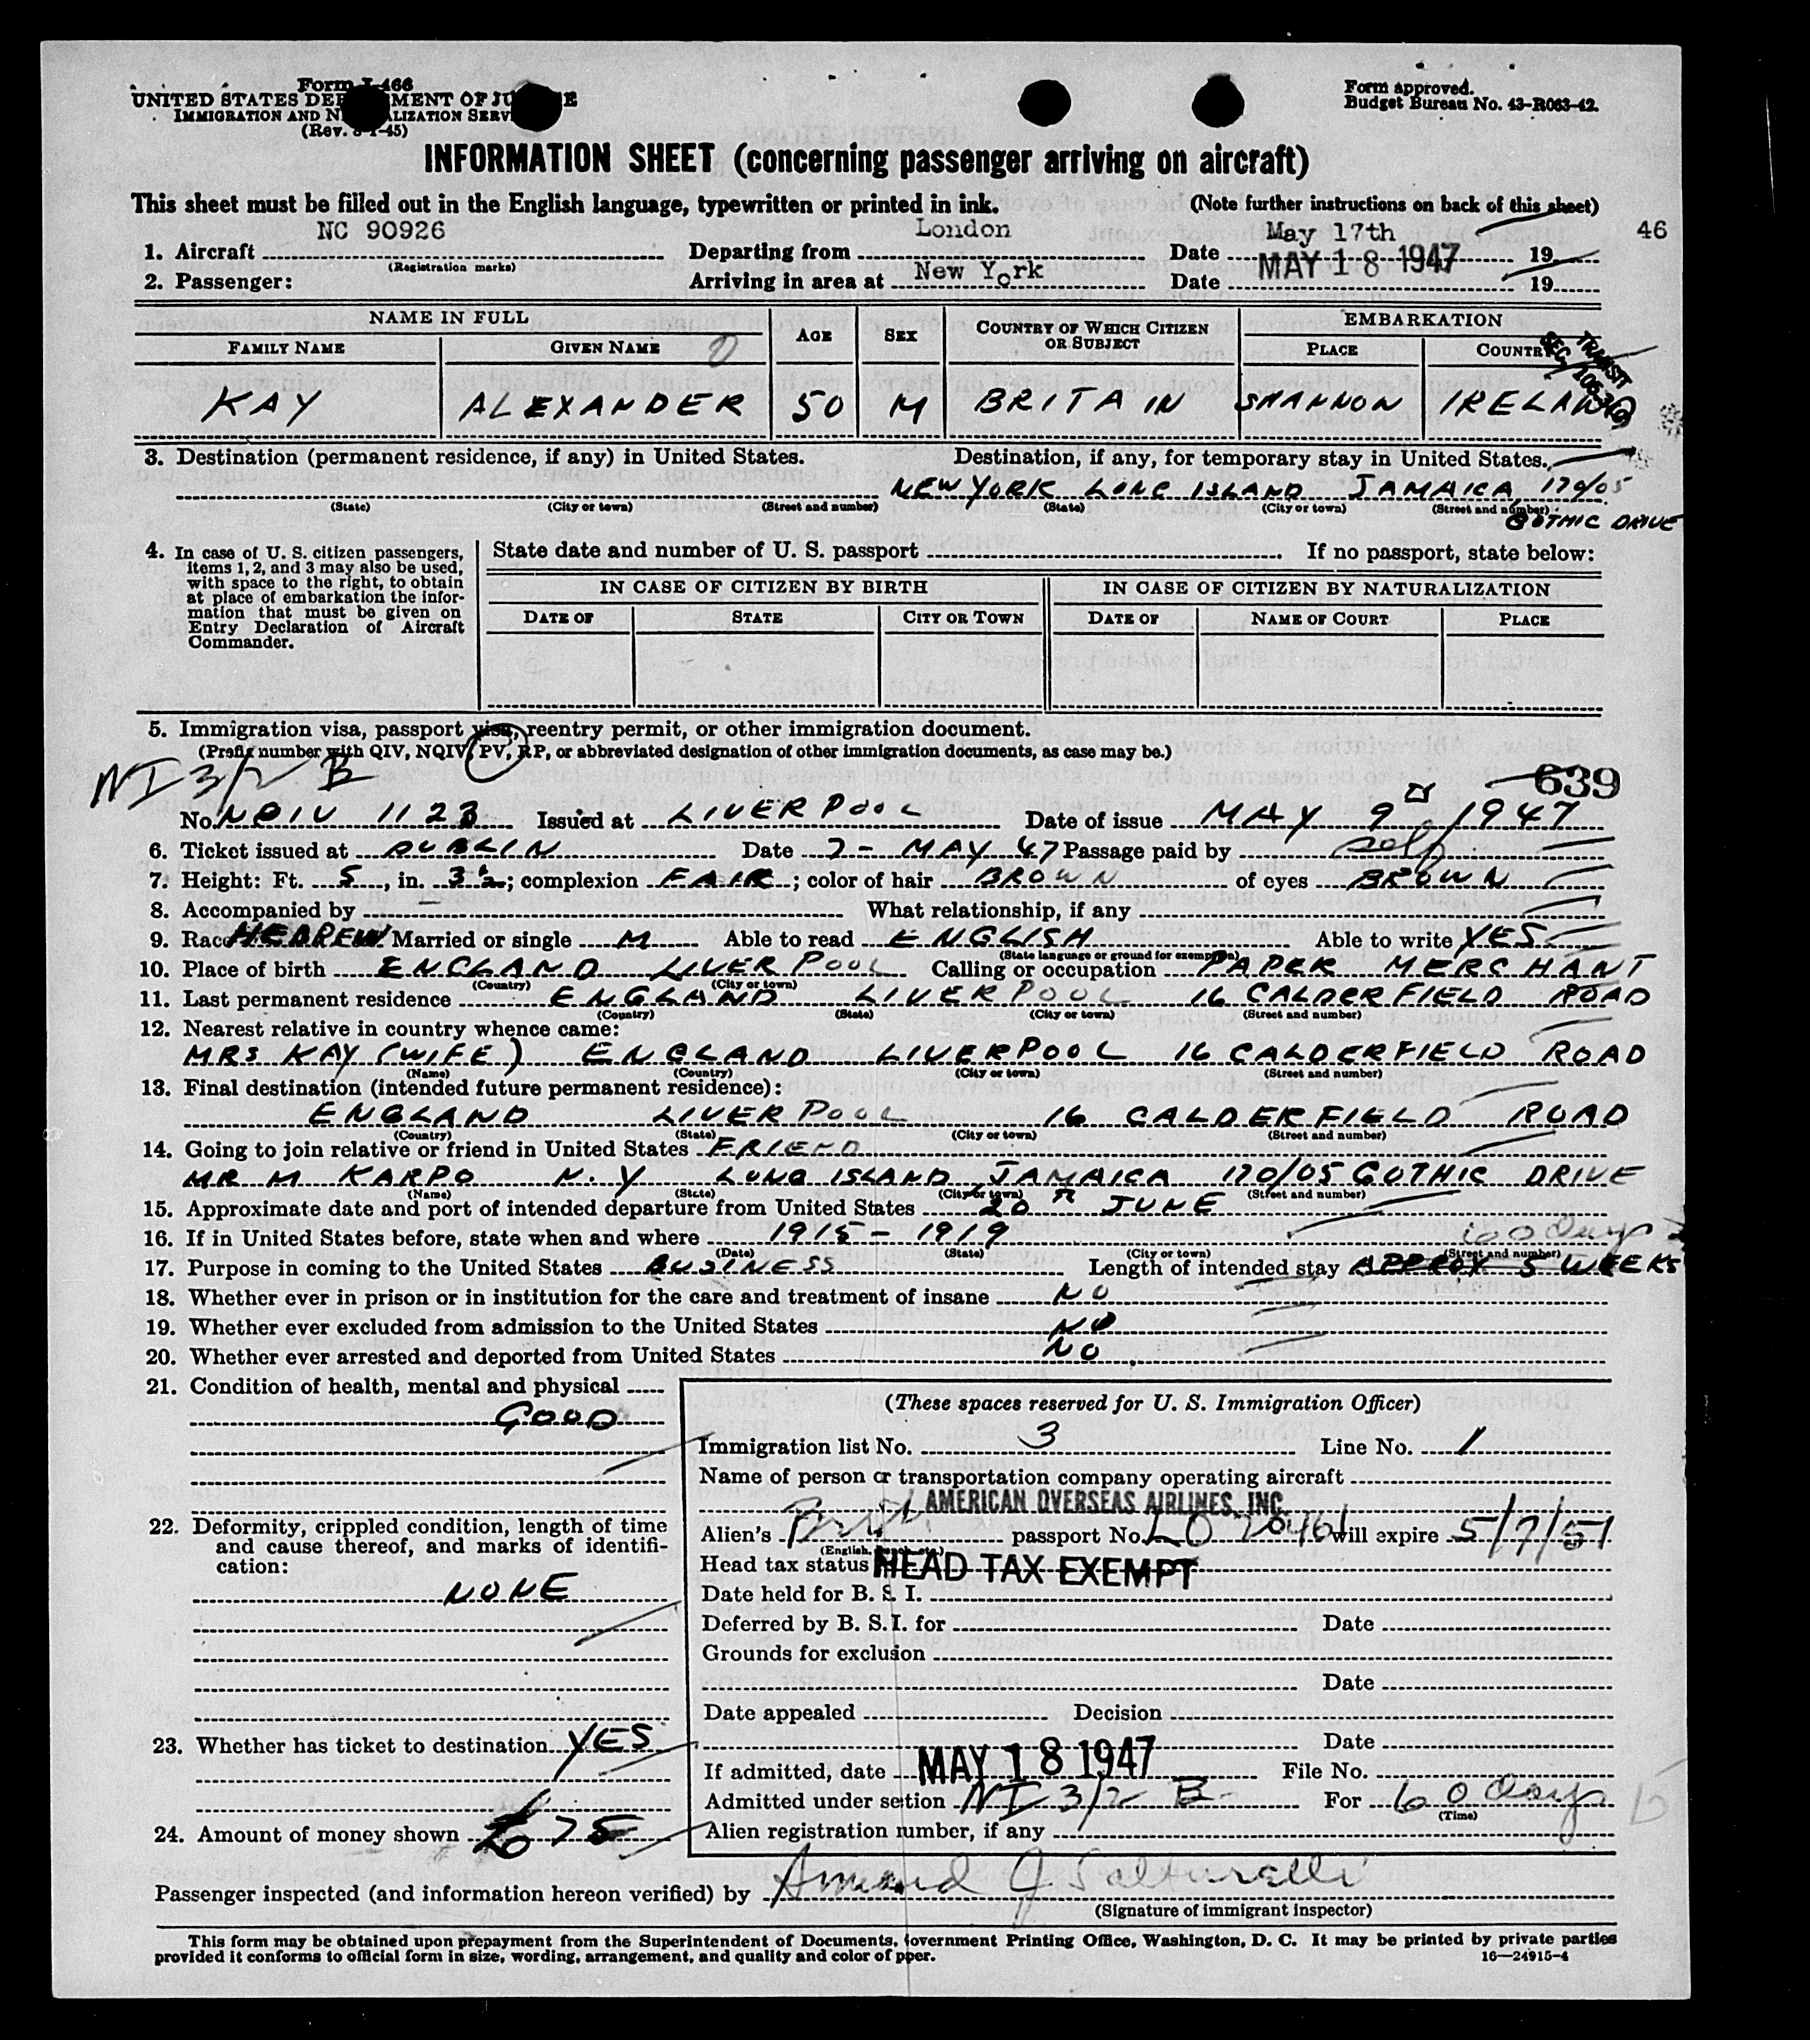 Form I-466
UNITED STATES DEPARTMENT OF JUSTICE
IMMIGRATION AND NATURALIZATION SERVICE
(Rev. 8-1-45)
Form approved.
Budget Bureau No. 43-R063-42.
INFORMATION SHEET (concerning passenger arriving on aircraft)
This sheet must be filled out in the English language, typewritten or printed in ink. (Note further instructions on back of this sheet)
1. Aircraft NC 90926 Departing from London Date May 17th 19 46
(Registration marks)
2. Passenger: Arriving in area at New York Date MAY 18 1947 19
NAME IN FULL AGE SEX COUNTRY OF WHICH CITIZEN OR SUBJECT EMBARKATION
FAMILY NAME GIVEN NAME PLACE COUNTRY
TRANSIT
KAY ALEXANDER 50 M BRITAIN SHANNON IRELAND
3. Destination (permanent residence, if any) in United States. Destination, if any, for temporary stay in United States.
NEW YORK LONG ISLAND JAMAICA 170/05
(State) (City or town) (Street and number) (State) (City or town) (Street and number)
GOTHIC DRIVE
4. In case of U. S. citizen passengers, items 1, 2, and 3 may also be used, with space to the right, to obtain at place of embarkation the information that must be given on Entry Declaration of Aircraft Commander.
State date and number of U. S. passport If no passport, state below:
IN CASE OF CITIZEN BY BIRTH IN CASE OF CITIZEN BY NATURALIZATION
DATE OF STATE CITY OR TOWN DATE OF NAME OF COURT PLACE
5. Immigration visa, passport visa, reentry permit, or other immigration document.
(Prefix number with QIV, NQIV, PV, RP, or abbreviated designation of other immigration documents, as case may be.)
NI 3/2 B
639
No. NQIV 1123 Issued at LIVERPOOL Date of issue MAY 9th 1947
6. Ticket issued at DUBLIN Date 7- MAY 47 Passage paid by self
7. Height: Ft. 5, in. 3½; complexion FAIR; color of hair BROWN of eyes BROWN
8. Accompanied by — What relationship, if any
9. Race HEBREW Married or single M Able to read ENGLISH Able to write YES
(State language or ground for exemption)
10. Place of birth ENGLAND LIVERPOOL Calling or occupation PAPER MERCHANT
(Country) (City or town)
11. Last permanent residence ENGLAND LIVERPOOL 16 CALDERFIELD ROAD
(Country) (State) (City or town) (Street and number)
12. Nearest relative in country whence came:
MRS KAY (WIFE) ENGLAND LIVERPOOL 16 CALDERFIELD ROAD
(Name) (Country) (City or town) (Street and number)
13. Final destination (intended future permanent residence):
ENGLAND LIVERPOOL 16 CALDERFIELD ROAD
(Country) (State) (City or town) (Street and number)
14. Going to join relative or friend in United States FRIEND
MR M KARPO N.Y LONG ISLAND JAMAICA 170/05 GOTHIC DRIVE
(Name) (State) (City or town) (Street and number)
15. Approximate date and port of intended departure from United States 20th JUNE
16. If in United States before, state when and where 1915 - 1919 60 days
(Date) (State) (City or town) (Street and number)
17. Purpose in coming to the United States BUSINESS Length of intended stay APPROX 5 WEEKS
18. Whether ever in prison or in institution for the care and treatment of insane NO
19. Whether ever excluded from admission to the United States NO
20. Whether ever arrested and deported from United States NO
21. Condition of health, mental and physical
GOOD
22. Deformity, crippled condition, length of time and cause thereof, and marks of identification:
NONE
23. Whether has ticket to destination YES
24. Amount of money shown 75
(These spaces reserved for U. S. Immigration Officer)
Immigration list No. 3 Line No. 1
Name of person or transportation company operating aircraft
AMERICAN OVERSEAS AIRLINES, INC.
Alien's British passport No. will expire 5/7/51
Head tax status HEAD TAX EXEMPT
Date held for B. S. I.
Deferred by B. S. I. for Date
Grounds for exclusion
Date
Date appealed Decision
Date
If admitted, date MAY 18 1947 File No.
Admitted under section NI 3/2 B For 60 days
(Time)
Alien registration number, if any
Passenger inspected (and information hereon verified) by
(Signature of immigrant inspector)
This form may be obtained upon prepayment from the Superintendent of Documents, Government Printing Office, Washington, D. C. It may be printed by private parties
provided it conforms to official form in size, wording, arrangement, and quality and color of paper. 16—24915-4